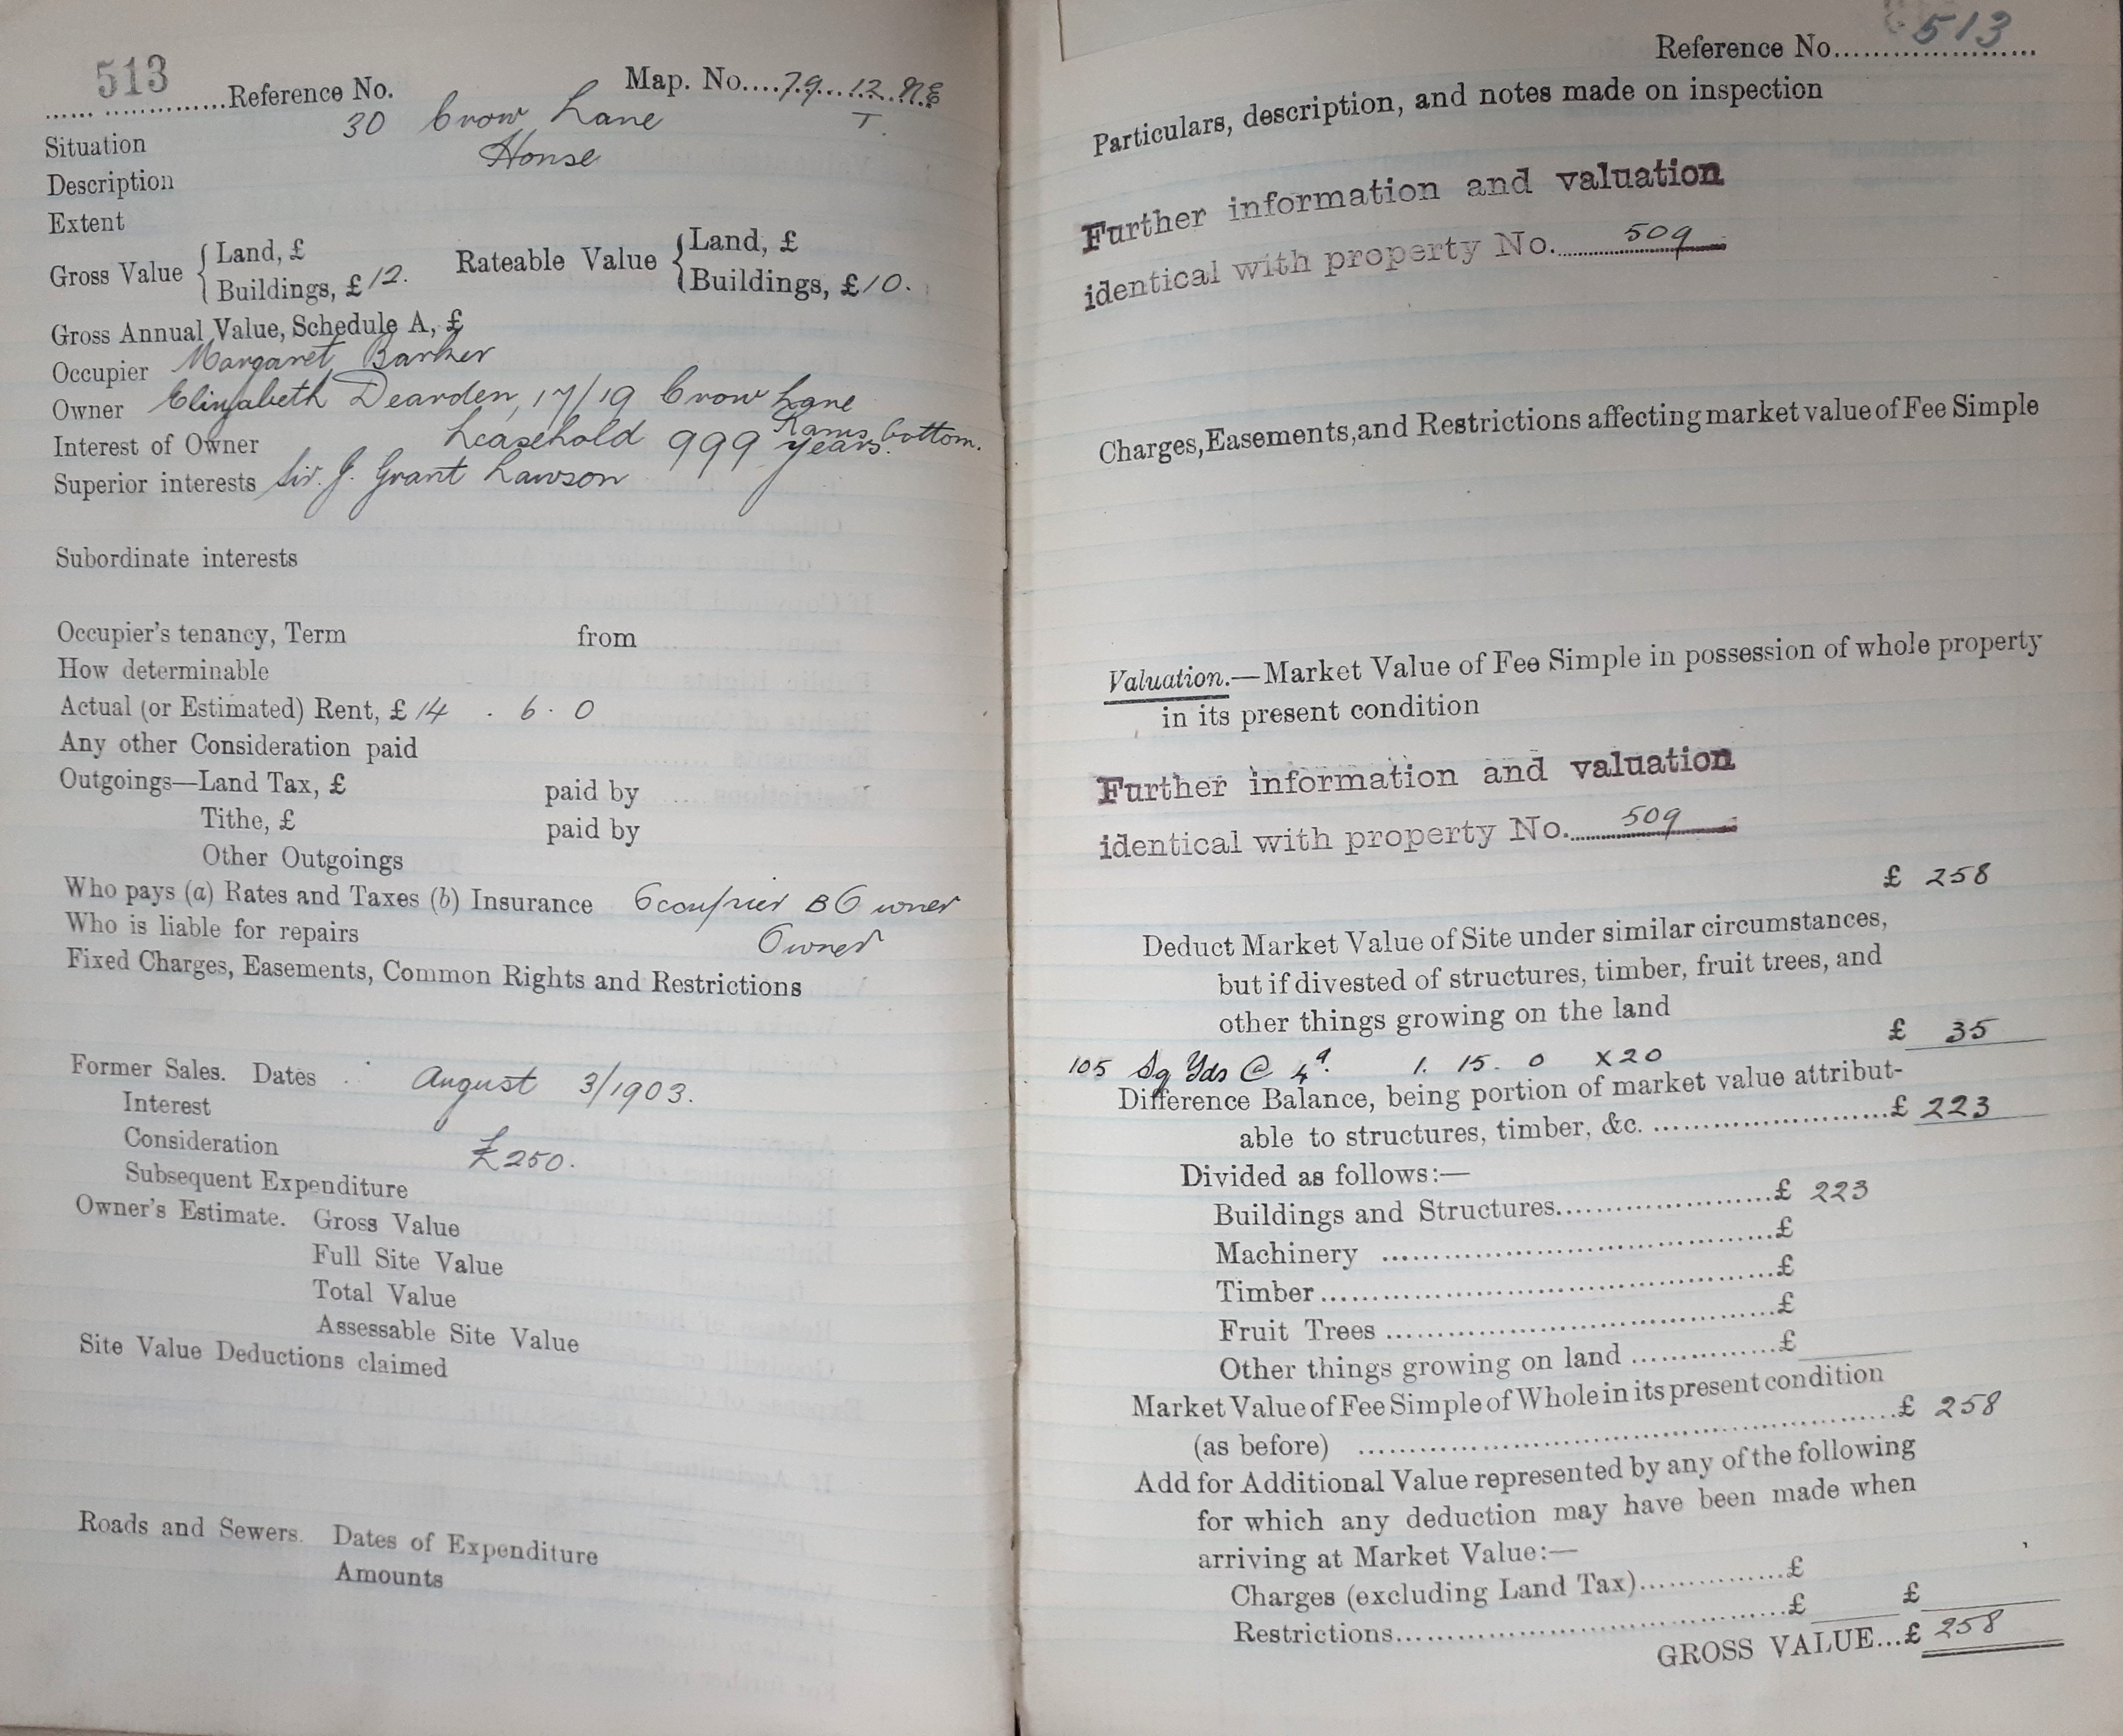 513
Reference No. Map. No....79...12.NE
Situation 30 Crow Lane T.
Description House
Extent
Gross Value { Land, £ Rateable Value { Land, £
Buildings, £12. Buildings, £10.
Gross Annual Value, Schedule A, £
Occupier Margaret Barker
Owner Elizabeth Dearden, 17/19 Crow Lane
Ramsbottom.
Interest of Owner Leasehold 999 years.
Superior interests Sir. J. Grant Lawson
Subordinate interests
Occupier's tenancy, Term from
How determinable
Actual (or Estimated) Rent, £ 14 . 6 . 0
Any other Consideration paid
Outgoings—Land Tax, £ paid by
Tithe, £ paid by
Other Outgoings
Who pays (a) Rates and Taxes (b) Insurance Occupier B Owner
Who is liable for repairs Owner
Fixed Charges, Easements, Common Rights and Restrictions
Former Sales. Dates August 3/1903.
Interest
Consideration £250.
Subsequent Expenditure
Owner's Estimate. Gross Value
Full Site Value
Total Value
Assessable Site Value
Site Value Deductions claimed
Roads and Sewers. Dates of Expenditure
Amounts
Reference No. 513
Particulars, description, and notes made on inspection
Further information and valuation
identical with property No. 509
Charges, Easements, and Restrictions affecting market value of Fee Simple
Valuation.—Market Value of Fee Simple in possession of whole property
in its present condition
Further information and valuation
identical with property No. 509
£ 258
Deduct Market Value of Site under similar circumstances,
but if divested of structures, timber, fruit trees, and
other things growing on the land
£ 35
105 Sq Yds @ 4d. 1. 15. 0 X20
Difference Balance, being portion of market value attribut-
able to structures, timber, &c. £ 223
Divided as follows:—
Buildings and Structures £ 223
Machinery £
Timber £
Fruit Trees £
Other things growing on land £
Market Value of Fee Simple of Whole in its present condition
(as before) £ 258
Add for Additional Value represented by any of the following
for which any deduction may have been made when
arriving at Market Value:—
Charges (excluding Land Tax) £
Restrictions £ £
GROSS VALUE...£ 258